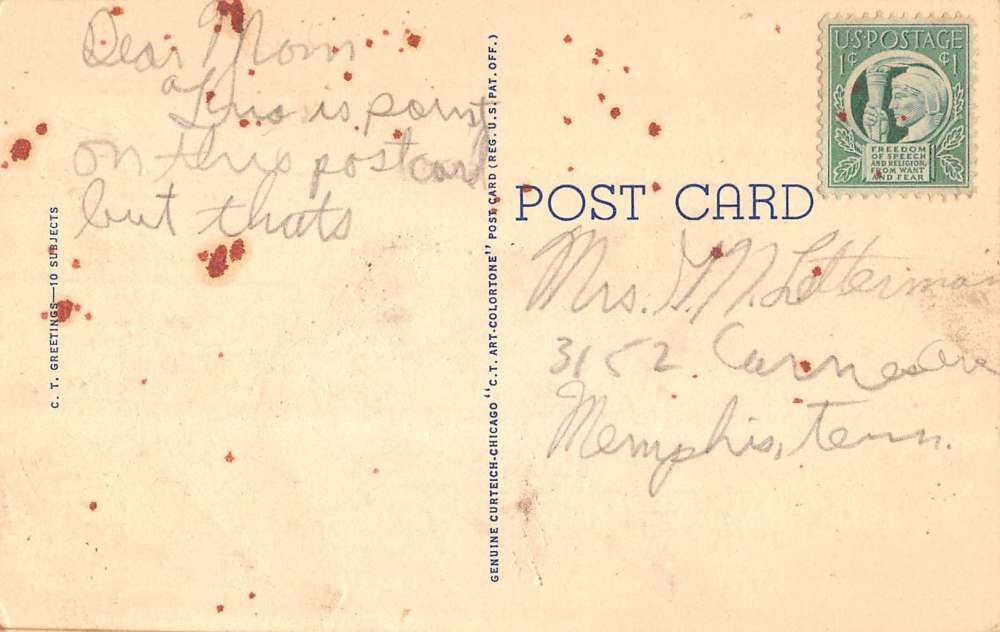 Dear Mom
This is paint
on this postcard
but thats
C. T. GREETINGS—10 SUBJECTS
GENUINE CURTEICH-CHICAGO "C.T. ART-COLORTONE" POST CARD (REG. U.S. PAT. OFF.)
U.S. POSTAGE
1¢ ¢1
FREEDOM
OF SPEECH
AND RELIGION,
FROM WANT
AND FEAR
POST CARD
Mrs. G. N. Letterman
3152 Carnes Ave
Memphis, Tenn.